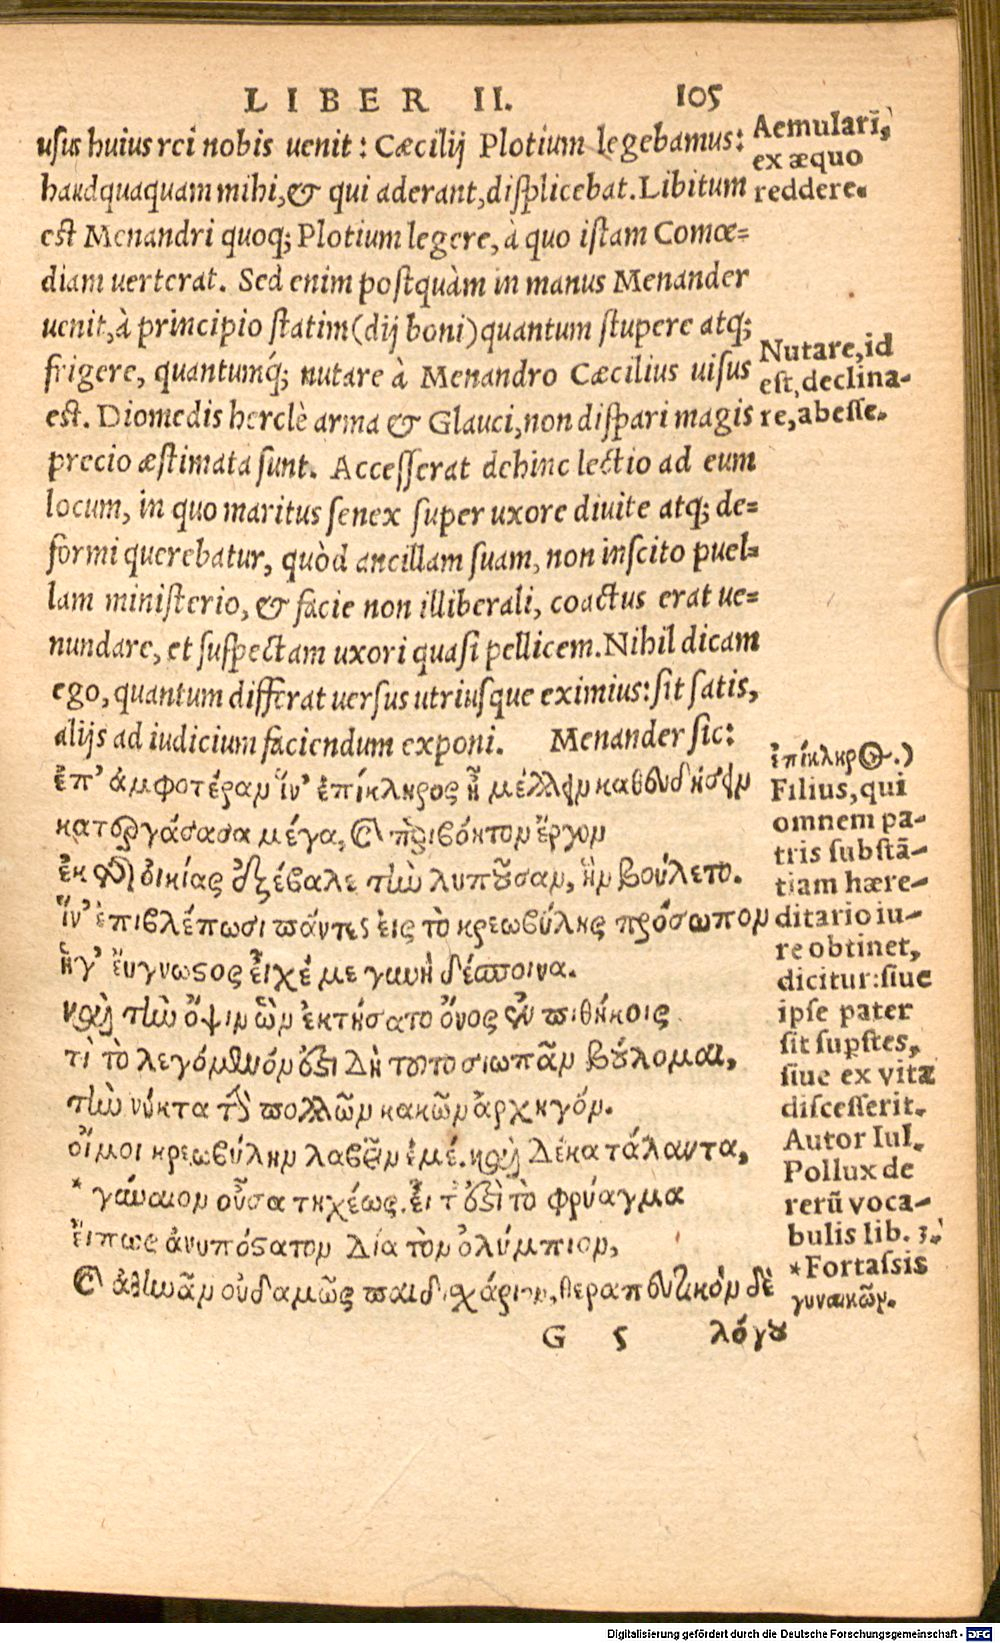 LIBER II. 105
usus huius rei nobis uenit: Cæcilij Plotium legebamus:
haudquaquam mihi, & qui aderant, displicebat. Libitum
est Menandri quoq; Plotium legere, à quo istam Comœ=
diam uerterat. Sed enim postquàm in manus Menander
uenit, à principio statim (dij boni) quantum stupere atq;
frigere, quantumq́; nutare à Menandro Cæcilius uisus
est. Diomedis herclè arma & Glauci, non dispari magis
precio æstimata sunt. Accesserat dehinc lectio ad eum
locum, in quo maritus senex super uxore diuite atq; de=
formi querebatur, quòd ancillam suam, non inscito puel=
lam ministerio, & facie non illiberali, coactus erat ue=
nundare, et suspectam uxori quasi pellicem. Nihil dicam
ego, quantum differat uersus utriusque eximius: sit satis,
alijs ad iudicium faciendum exponi. Menander sic:
ἐπ' ἀμφοτέραν ἵν' ἐπίκληρος ἣ μέλλην καθουδήσην
κατοργάσασα μέγα, καὶ περιβόητον ἔργον
ἐκ τῆς οἰκίας ἐξέβαλε τὴν λυποῦσαν, ἣν βούλετο.
ἵν' ἐπιβλέπωσι πάντες εἰς τὸ κρεωβύλης πρόσωπον
ἥγ' ἔυγνωςος ἔιχέ με γυνὴ δέσποινα.
καὶ τὴν ὄψιν ὣν ἐκτήσατο ὄνος ἐν πιθήκοις
τὶ τὸ λεγόμενόν ἐςι δὴ τοῦτο σιωπᾶν βούλομαι,
τὴν νύκτα τὴν πολλῶν κακῶν ἀρχηγόν.
οἴμοι κρεωβύλην λαβεῖν ἐμέ. καὶ δέκα τάλαντα,
* γύναιον οὖσα τηχέως. εἶ τ' ἐςὶ τὸ φρύαγμα
ἔιπως ἀνυπόςατον Δία τὸν ὀλύμπιον,
καὶ ἀθηνᾶν οὐδαμῶς παιδισχάριον, θεραπευτικὸν δὲ
G 5 λόγου
Aemulari,
ex æquo
reddere.
Nutare, id
est, declina-
re, abesse.
ἐπίκληρος.)
Filius, qui
omnem pa-
tris substā-
tiam hære-
ditario iu-
re obtinet,
dicitur: siue
ipse pater
sit supstes,
siue ex vita
discesserit.
Autor Iul.
Pollux de
rerū voca-
bulis lib. 3.
*Fortassis
γυναικῶν.
Digitalisierung gefördert durch die Deutsche Forschungsgemeinschaft - DFG